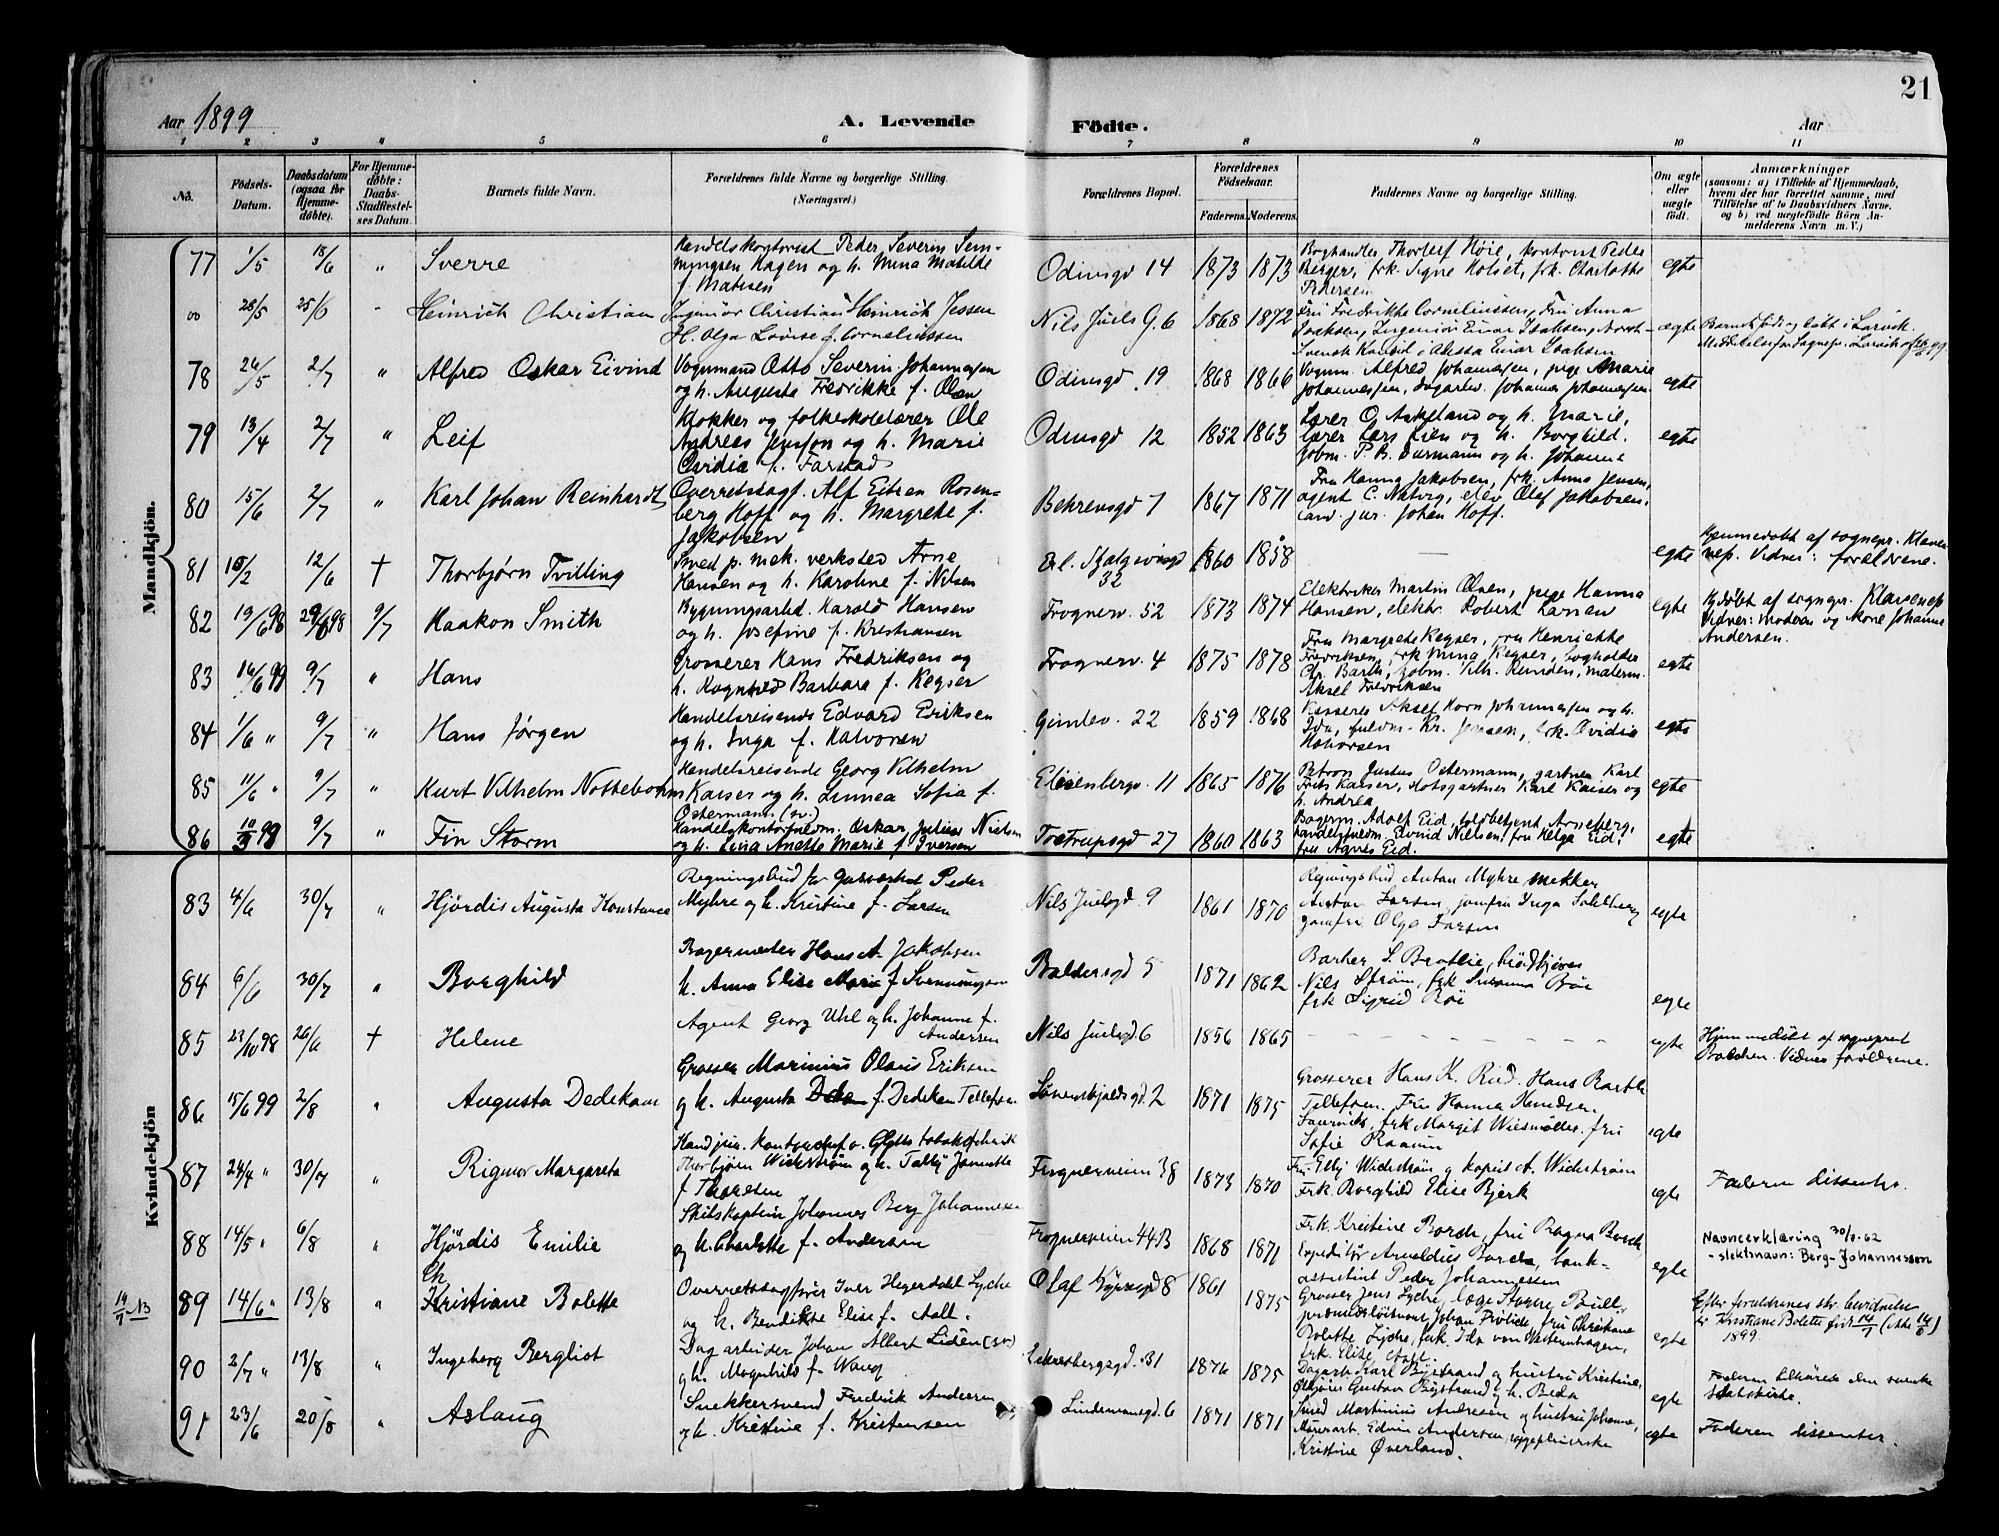 21
Aar 1899
A. Levende
Födte.
Aar
1 2 3 4 5 6 7 8 9 10 11
No.
Födsels-Datum.
Daabsdatum (ogsaa for Hjemmedøbte).
For Hjemmedøbte: Daabs-Stadfæstelses Datum.
Barnets fulde Navn.
Forældrenes fulde Navne og borgerlige Stilling. (Næringsvei.)
Forældrenes Bopæl.
Forældrenes Födselsaar.
Faderens. Moderens.
Faddernes Navne og borgerlige Stilling.
Om ægte eller uægte födt.
Anmærkninger
(saasom: a) i Tilfælde af Hjemmedaab, hvem der har forrettet samme, med Tilföielse af to Daabsvidners Navne, og b) ved uægtefödte Börn Anmelderens Navn m. V.)
Mandkjön.
77 1/5 18/6 " Sverre
Handelskontorist Peder Severin Hemmingsen Hagen og h. Mina Matilde f. Matisen
Odinsgd 14 1873 1873
Boghandler Thorleif Høie, kontorist Peder Berger, frk. Signe Holset, frk. Charlotte Pedersen
egte
00 28/5 25/6 " Heinrich Christian
Ingeniør Christian Heinrich Jessen
H. Olga Lovise f. Corneliussen
Nils Juels G. 6 1868 1872
Fru Fredrikke Corneliussen, Fru Anna Isaksen, Ingeniör Einar Isaksen,
Svensk Konsul i Einar Isaksen
ægte
Barnet født og døbt i Larvik.
Meddelelse fra Sognepr. Larvik
78 26/5 2/7 " Alfred Oskar Eivind
Vognmand Otto Severin Johannesen og h. Augusta Fredrikke f. Olsen
Odinsgd 19 1868 1866
Vognm. Alfred Johannesen, pige Marie Johannesen, dagarb. Johannes Johannesen
egte
79 13/4 2/7 " Leif
Klokker og folkeskolelærer Ole Andreas Jensson og h. Marie Ovidia f. Farstad
Odinsgd 12 1852 1863
Lærer O. Askeland og h. Marie, lærer Lars Lien og h. Borghild, jobm. P. B. Duemann og h. Johanne
egte
80 15/6 2/7 " Karl Johan Reinhardt
Overretssagf. Alf Eitzen Rosenberg Hoff og h. Margrete f. Jakobsen
Behrensgd 7 1867 1871
Fru Hanna Jakobsen, frk. Anna Jensen, agent C. Natvig, elev Olef Jakobsen, cand. jur. Johan Hoff.
egte
81 15/2 12/6 † Thorbjørn Tvilling
Smed p. mek. verksted Arne Hansen og h. Karoline f. Nilsen
Erl. Skjalgsøнsgd 32 1860 1858
—
egte
Hjemmedøbt af sognepr. Klavenes. Vidner: forældrene.
82 19/6 98 29/6 98 9/7 Haakon Smith
Bygningsarbd. Harald Hansen og h. Josefine f. Kristiansen
Frognerv. 52 1873 1874
Elektriker Martin Olsen, pige Hanna Hansen, elektr. Robert Larsen
egte
Hjdøbt af sognepr. Klavenes. Vidner: moderen og kone Johanne Andersen.
83 16/6 99 9/7 " Hans
Grosserer Hans Fredriksen og h. Ragnhild Barbara f. Keyser
Frognerv. 4 1875 1878
Fru Margrete Keyser, fru Henriette Fredriksen, frk Mina Keyser, bogholder Chr. Barth, jobm. Vilh. Reinden, materm. Aksel Fredriksen
egte
84 1/6 " 9/7 " Hans Jørgen
Handelsreisende Edvard Eriksen og h. Inga f. Halvorsen
Gimlev. 22 1859 1868
Kasserer Aksel Korn Johannesen og h. Ida, fuldm. Kr. Jensen, frk. Ovidia Halvorsen
egte
85 11/6 " 9/7 " Kurt Vilhelm Nottebohm
Handelsreisende Georg Vilhelm Kaiser og h. Linnea Sofia f. Ostermann (sv.)
Eleisenbergv. 11 1865 1876
Patron Justus Ostermann, gartner Karl Frits Kaiser, Hotsgartner Karl Kaiser og h. Andrea
egte
86 10/3 99 9/7 " Fin Storm
Handelskontorfuldm. Oskar Julius Nielsen og h. Lina Anette Marie f. Iversen
Tostrupsgd 27 1860 1863
Bagerm. Adolf Eid, toldbetjent Arneberg, handelsfuldm. Eivind Nielsen, fru Helga Eid, fru Agnes Eid.
egte
Kvindekjön
83 4/6 30/7 " Hjördis Augusta Konstance
Regningsbud for gasverket Peder Myhre og h. Kristine f. Larsen
Nils Juelsgd 9 1861 1870
Regningsbud Anton Myhre snekker Anton Larsen, jomfru Inga Solberg jomfru Olga Larsen
egte
84 6/6 30/7 " Borghild
Bagermester Hans A. Jakobsen h. Anna Elise Marie f Svennungsen
Baldersgd 5 1871 1862
Barber S. Bratlie, brödkjörer Nils Strøm, frk Susanna Böe frk Sigrid Böe
egte
85 23/10 98 26/6 † Helene
Agent Georg Uhl og h. Johanne f. Andersen
Nils Juelsgd 6 1856 1865
egte
Hjemmedöbt af sogneprest Balchen. Vidner forældrene.
86 15/6 99 2/8 " Augusta Dedekam
Grosser Marinius Olaus Eriksen og h. Augusta f. Dedekam Tellefsen
Lövenskjoldsgd. 2 1871 1875
Grosserer Hans K. Rud. Hans Barth Tellefsen. Fru Hanna Knudsen. frk Margit Wiesmöller, fru Sofie Raaum
egte
87 24/4 " 30/7 " Rigmor Margareta
Handjsu. kontorchef v. Glotts tobaksfabrik Thorbjørn Widerstrøm og h. Tally Janette f Thoresen
Frognerveien 38 1873 1870
Fru Elly Widerstrøm og kaptit A. Widerstrøm Frk. Borghild Elise Bjerk
egte
Faderen dissenter.
88 14/5 " 6/8 " Hjördis Emilie
Skibskaptein Johannes Berg Johannessen og h. Charlotte f. Andersen
Frognerveien 44B 1868 1871
Frk. Kristine Borch, fru Ragna Borch Expeditör Arnoldus Borch, bank-assistent Peder Johannessen
egte
Navneerklæring 30/3.62 - slektsnavn: Berg-Johannesson
14/7 NB
89 14/6 " 13/8 " Ch Kristiane Bolette
Overretssagfører Iver Heyerdahl Lyche og h. Bendikte Elise f. Aall.
Olaf Kyrresgd 8 1861 1875
Grosser Jens Lyche, læge Storm Bull, premierløitnant Johan Frölich, fru Christiane Bolette Lyche, frk. Ida von Westernhagen, frk. Elise Aall.
egte
Efter forældrenes skr. bevidnelse er Kristiane Bolette født 14/7 (ikke 14/6) 1899.
90 2/7 " 13/8 " Ingeborg Bergliot
Dagarbeider Johan Albert Lidén (sv) og h. Magnhild f. Wang
Eckersbergsgd. 31 1876 1875
Dagarb. Karl Bystrand og hustru Kristine, Ölkjörer Gustav Bystrand og h. Beda
egte
Faderen tilhörer den svenske statskirke.
91 23/6 20/8 " Aslaug
Snekkersvend Fredrik Andersen og h. Kristine f. Kristensen
Lindemansgd. 6 1871 1871
Smed Martinius Andresen og hustru Johanne, Murerarb. Edvin Andersen, sygepleierske Kristine Øverland.
egte
Faderen dissenter.